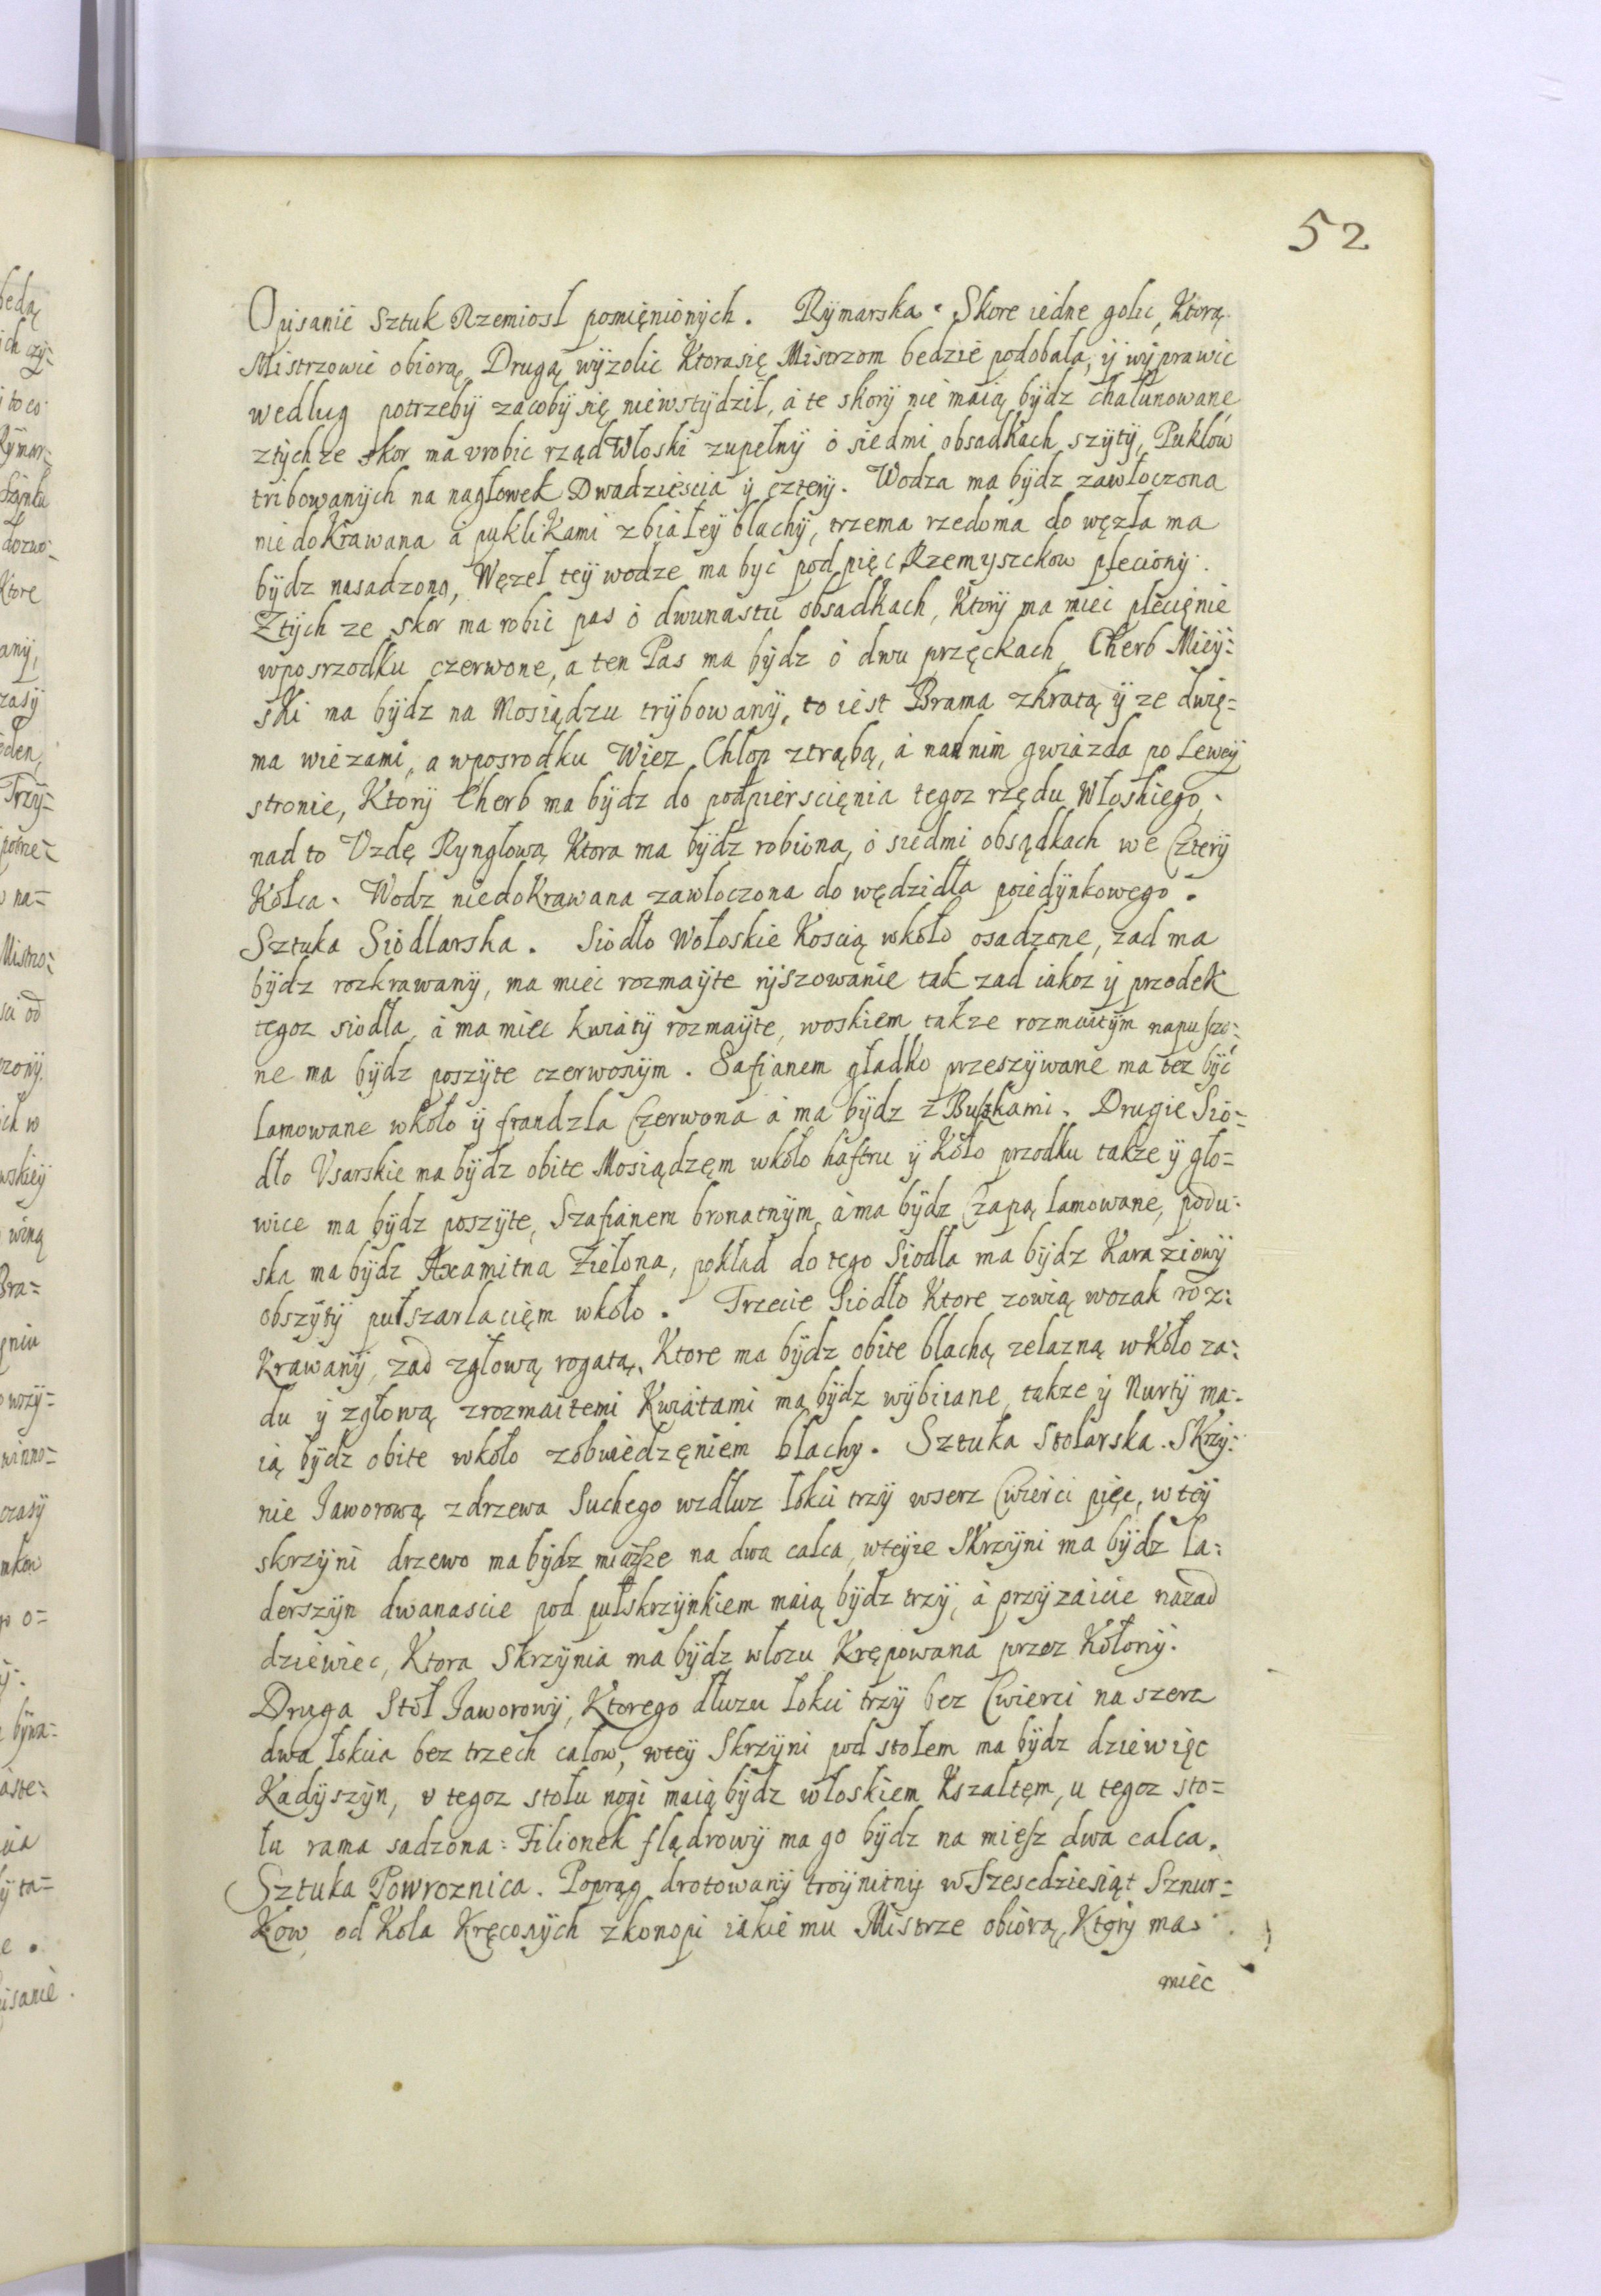 52
Opisanie Sztuk Rzemiosł pomięnionych. Rymarska. Skore iedne golic, Ktorą
Mistrzowie obiorą, Drugą wyzolic Ktorasię Mistrzom bedzie podobala, y wyprawic
wedlug potrzeby zacoby się niewstydzil, a te skory nie maią bydz chałunowane
ztychze skor ma vrobic rząd Włoski zupełny o siedmi obsadkach szyty, Puklow
tribowanych na nagłowek Dwadziescia y cztery. Wodza ma bydz zawłoczona
niedokrawana a puklikami z białey blachy, trzema rzedoma do węzła ma
bydz nasadzona, Węzeł tey wodze ma byc pod pięc Rzemyszckow pleciony.
Ztych ze skor ma robic pas o dwunastu obsadkach, Ktory ma miec plecięnie
wposrzodku czerwone, a ten Pas ma bydz o dwu przęckach, Cherb Miey=
ski ma bydz na Mosiądzu trybowany, to iest Brama zkratą y ze dwię=
ma wiezami, a wposrodku Wiez Chłop ztrąbą, a nad nim gwiazda po Lewey
stronie, Ktory Cherb ma bydz do podpierscięnia tegoz rzędu Włoskiego,
nad to Vzdę Rynglową Ktora ma bydz robiona, o siedmi obsądkach we Cztery
Kołca. Wodz niedokrawana zawłoczona do wędzidła poiedynkowego.
Sztuka Siodlarska. Siodło Wołoskie Koscią wkoło osadzone, zad ma
bydz rozkrawany, ma miec rozmayte ryszowanie tak zad iakoz y przodek
tegoz siodła, a ma miec kwiaty rozmayte, woskiem takze rozmaitym napuszo=
ne ma bydz poszyte czerwonym. Safianem gładko przeszywane ma tez być
lamowane wkoło y frandzla Czerwona a ma bydz z Buszkami. Drugie Sio=
dło Vsarskie ma bydz obite Mosiądzęm wkoło haftru y Koło przodku takze y gło=
wice ma bydz poszyte, Szafianem bronatnym a ma bydz Czapą lamowane, podu=
ska ma bydz Axamitna Zielona, pokład do tego Siodła ma bydz Karaziowy
obszyty pułszarlacięm wkoło. Trzecie Siodło Ktore zowią wozak roz=
Krawany, zad zgłową rogatą, Ktore ma bydz obite blachą zelazną wkoło za=
du y zgłową zrozmaitemi Kwiatami ma bydz wybiiane, takze y Nurty ma=
ią bydz obite wkoło zobwiedzęniem blachy. Sztuka Stolarska. Skrzy=
nie Jaworową z drzewa Suchego wzdłuz łokci trzy wserz Cwierci pięc, w tey
skrzyni drzewo ma bydz miąsze na dwa calca, wteyze Skrzyni ma bydz La=
derszyn dwanascie pod pułskrzynkiem maią bydz trzy, a przyzaicie nazad
dziewiec, Ktora Skrzynia ma bydz wlozu Krępowana przez Kołony.
Druga Stoł Jaworowy, Ktorego dłuzu łokci trzy bez Cwierci na szerz
dwa łokcia bez trzech calow, wtey Skrzyni pod stołem ma bydz dziewięc
Kadyszyn, v tegoz stołu nogi maią bydz włoskiem Kszaltęm, u tegoz sto=
łu rama sadzona: Filionek flądrowy ma go bydz na miesz dwa calca.
Sztuka Powroznica. Poprąg drotowany troynitny w Szescdziesiąt Sznur=
Kow, od Koła Kręconych zkonopi iakie mu Mistrze obiorą, Ktory ma
miec